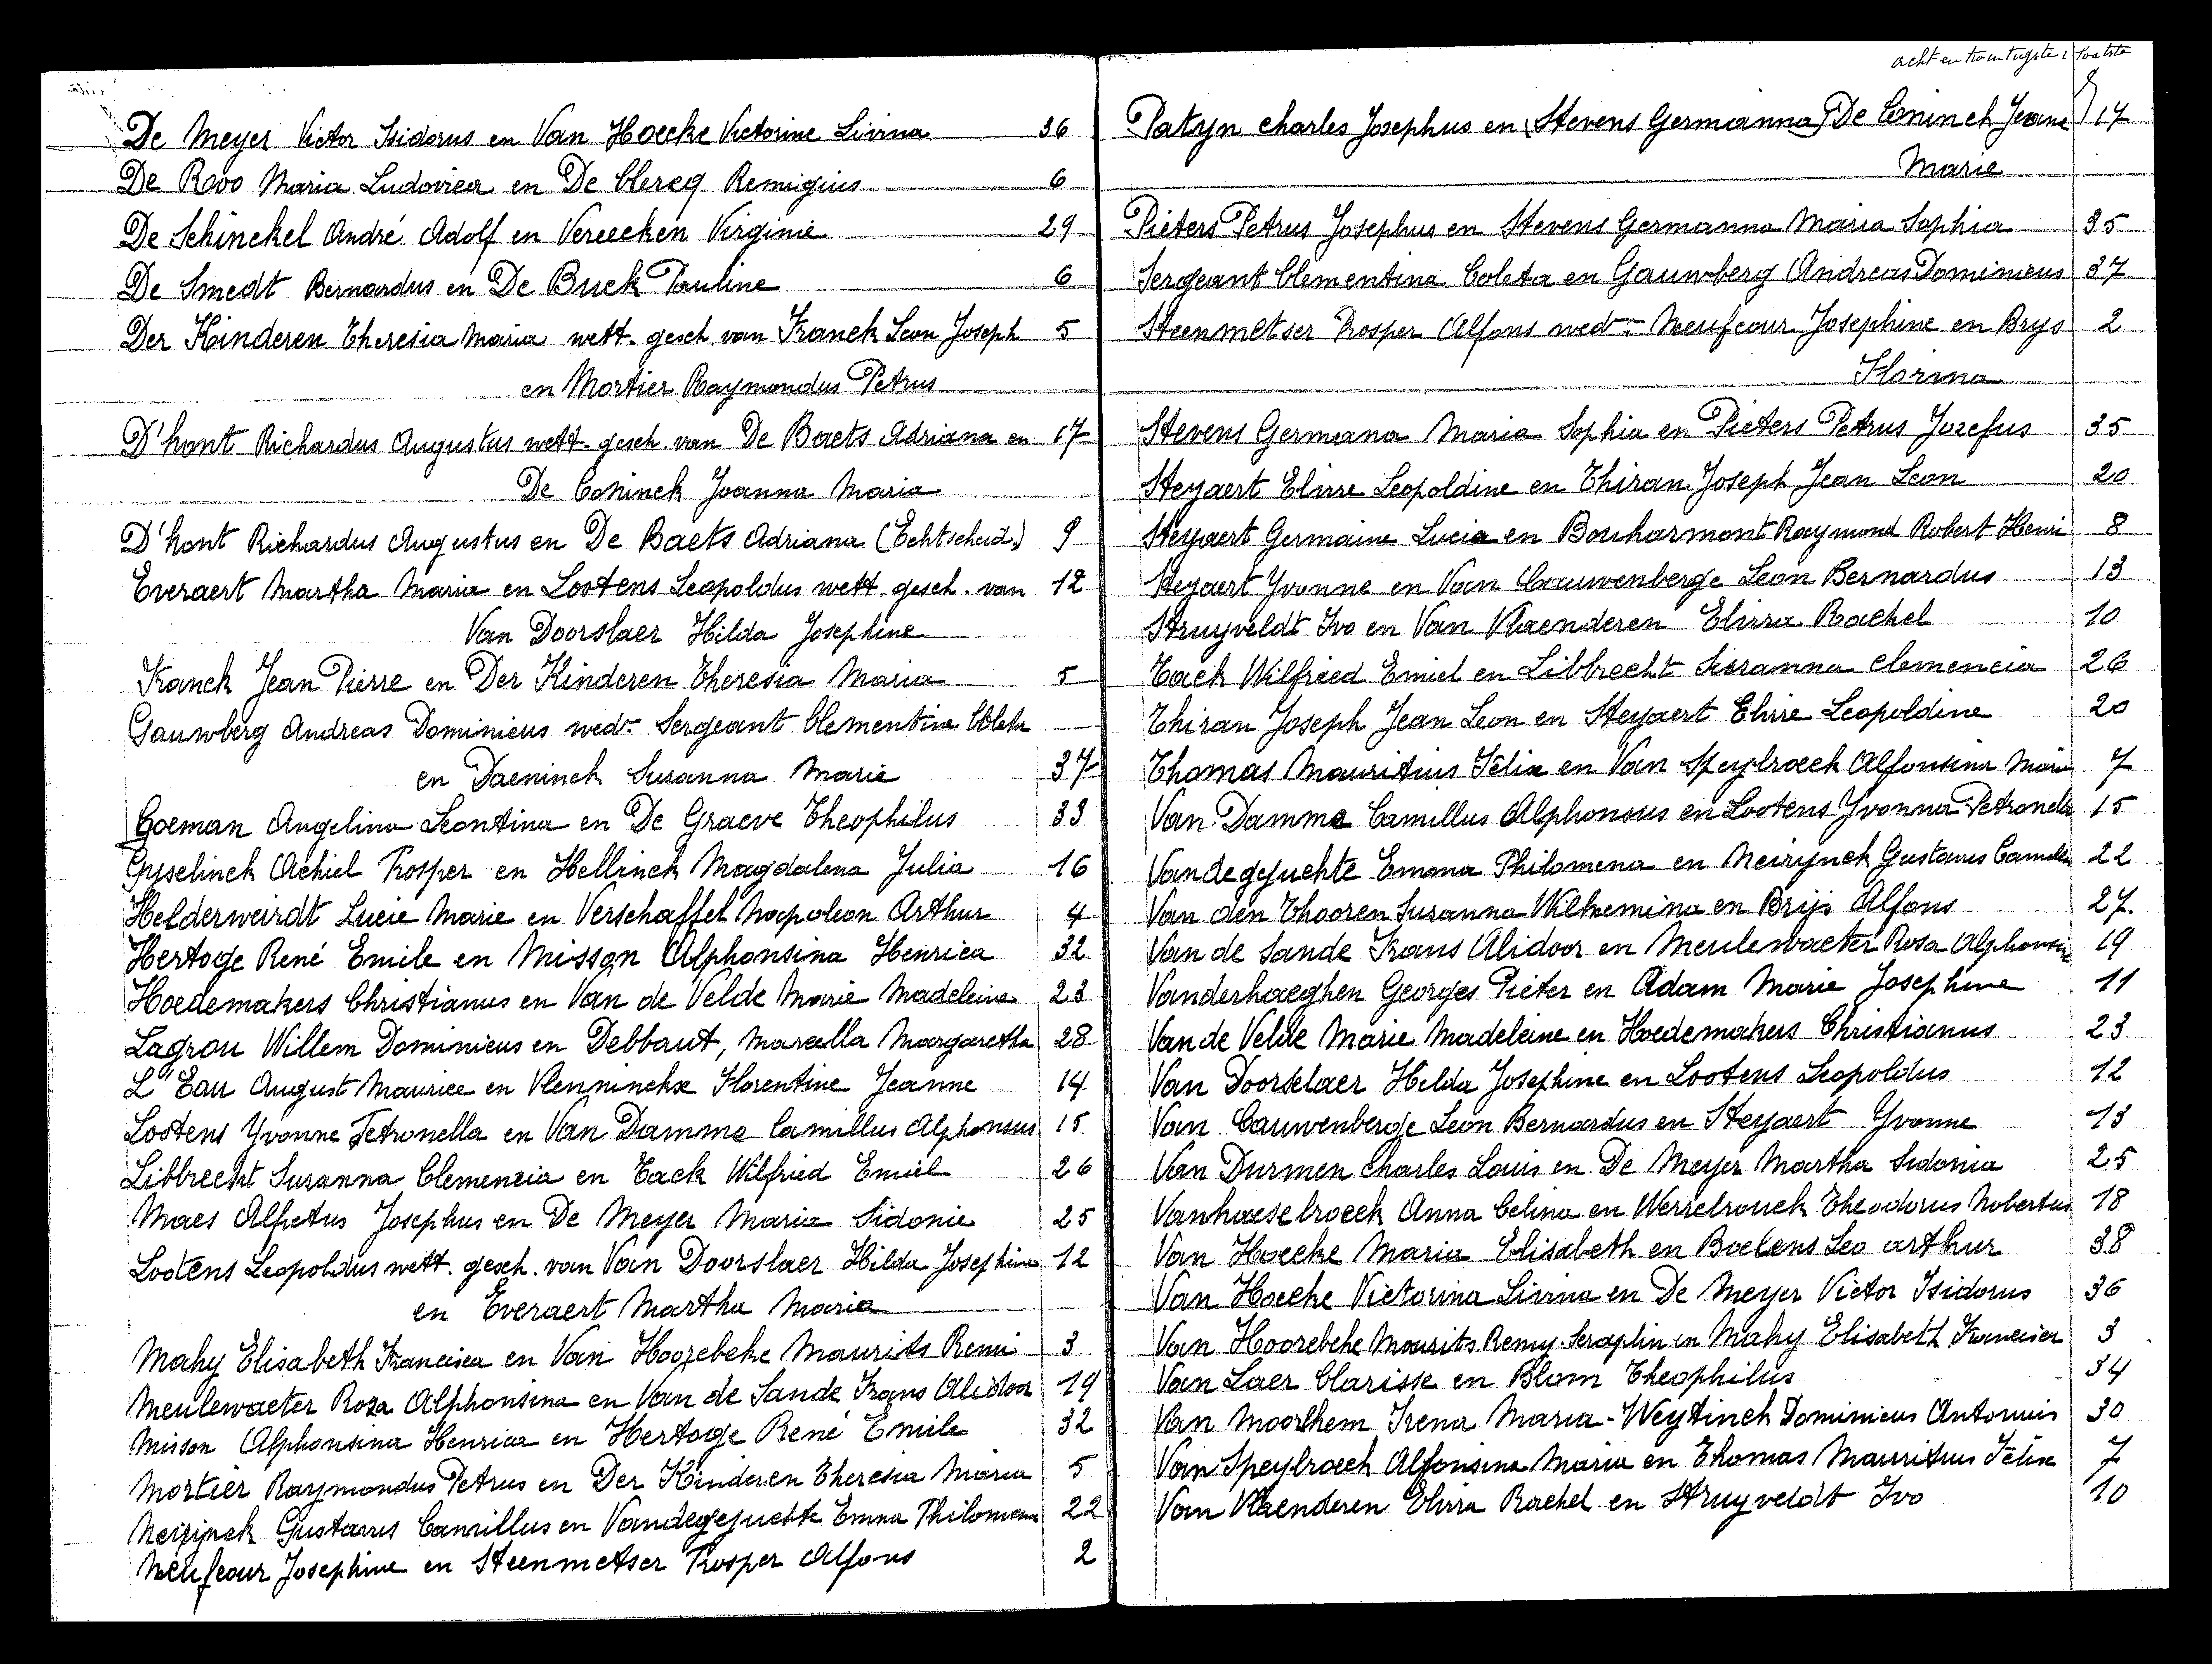 De Meyer Victor Isidorus en Van Hoecke Victorine Livina 36
De Roo Maria Ludovica en De Clercq Remigius 6
De Schinckel André Adolf en Vereecken Virginie 29
De Smedt Bernardus en De Buck Pauline 6
Der Kinderen Theresia Maria wett. gesch. van Franck Leon Joseph 5
en Mortier Raymondus Petrus
D'hont Richardus Augustus wett. gesch. van De Baets Adriana en 17
De Coninck Joanna Maria
D'hont Richardus Augustus en De Baets Adriana (Echtscheid.) 9
Everaert Martha Maria en Lootens Leopoldus wett. gesch. van 12
Van Doorslaer Hilda Josephine
Franck Jean Pierre en Der Kinderen Theresia Maria 5
Gauwberg Andreas Dominicus wedr. Sergeant Clementine Coleta
en Daeninck Susanna Marie 37
Goeman Angelina Leontina en De Graeve Theophilus 33
Gyselinck Achiel Prosper en Hellinck Magdalena Julia 16
Helderweirdt Lucie Marie en Verschaffel Napoleon Arthur 4
Hertoge René Emile en Misson Alphonsina Henrica 32
Hoedemakers Christianus en Van de Velde Marie Madeleine 23
Lagrou Willem Dominicus en Debbaut, Marcella Margaretha 28
L'Eau August Maurice en Vlenninckx Florentine Jeanne 14
Lootens Yvonne Petronella en Van Damme Camillus Alphonsus 15
Libbrecht Suzanna Clemencia en Tack Wilfried Emiel 26
Maes Alfetus Josephus en De Meyer Maria Sidonie 25
Lootens Leopoldus wett. gesch. van Van Doorslaer Hilda Josephina 12
en Everaert Martha Maria
Mahy Elisabeth Francisca en Van Hoorebeke Maurits Remi 3
Meulewaeter Roza Alphonsina en Van de Sande Frans Alidoor 19
Misson Alphonsina Henrica en Hertoge René Emile 32
Mortier Raymondus Petrus en Der Kinderen Theresia Maria 5
Neirijnck Gustavus Camillus en Vandegejuchte Emma Philomena 22
Neufcour Josephine en Steenmetser Prosper Alfons 2
acht en twintigste laatste
Patyn Charles Josephus en (Stevens Germanna) De Coninck Jeanne 17
Marie
Pieters Petrus Josephus en Stevens Germanna Maria Sophia 35
Sergeant Clementina Coleta en Gauwberg Andreas Dominicus 37
Steenmetser Prosper Alfons wedr. Neufcour Josephine en Brys 2
Florina
Stevens Germana Maria Sophia en Pieters Petrus Jozefus 35
Steyaert Elvire Leopoldine en Thiran Joseph Jean Leon 20
Steyaert Germaine Lucia en Bouharmont Raymond Robert Henri 8
Steyaert Yvonne en Van Cauwenberge Leon Bernardus 13
Struyveldt Ivo en Van Vlaenderen Elvira Rachel 10
Tack Wilfried Emiel en Libbrecht Suzanna Clemencia 26
Thiran Joseph Jean Leon en Steyaert Elvire Leopoldine 20
Thomas Mauritius Félix en Van Speybroeck Alfonsina Maria 7
Van Damme Camillus Alphonsus en Lootens Yvonna Petronella 15
Vandegejuchte Emma Philomena en Neirynck Gustavus Camillus 22
Van den Thooren Suzanna Wilhemina en Brijs Alfons 27.
Van de Sande Frans Alidoor en Meulewaeter Rosa Alphonsine 19
Vanderhaeghen Georges Pieter en Adam Marie Josephine 11
Van de Velde Marie Madeleine en Hoedemakers Christianus 23
Van Doorselaer Hilda Josephine en Lootens Leopoldus 12
Van Cauwenberge Leon Bernardus en Steyaert Yvonne 13
Van Durmen Charles Louis en De Meyer Martha Sidonia 25
Vanhaeselroeck Anna Celina en Werrelrouck Theodorus Nobertus 18
Van Hoecke Maria Elisabeth en Boelens Leo Arthur 38
Van Hoecke Victorina Livina en De Meyer Victor Isidorus 36
Van Hoorebeke Maurits Remy Seraphin en Mahy Elisabeth Francisca 3
Van Laer Clarisse en Blom Theophilus 34
Van Moorlhem Irena Maria - Weytinck Dominicus Antonius 30
Van Speybroeck Alfonsina Maria en Thomas Mauritius Félix 7
Van Vlaenderen Elvira Rachel en Struyveldt Ivo 10